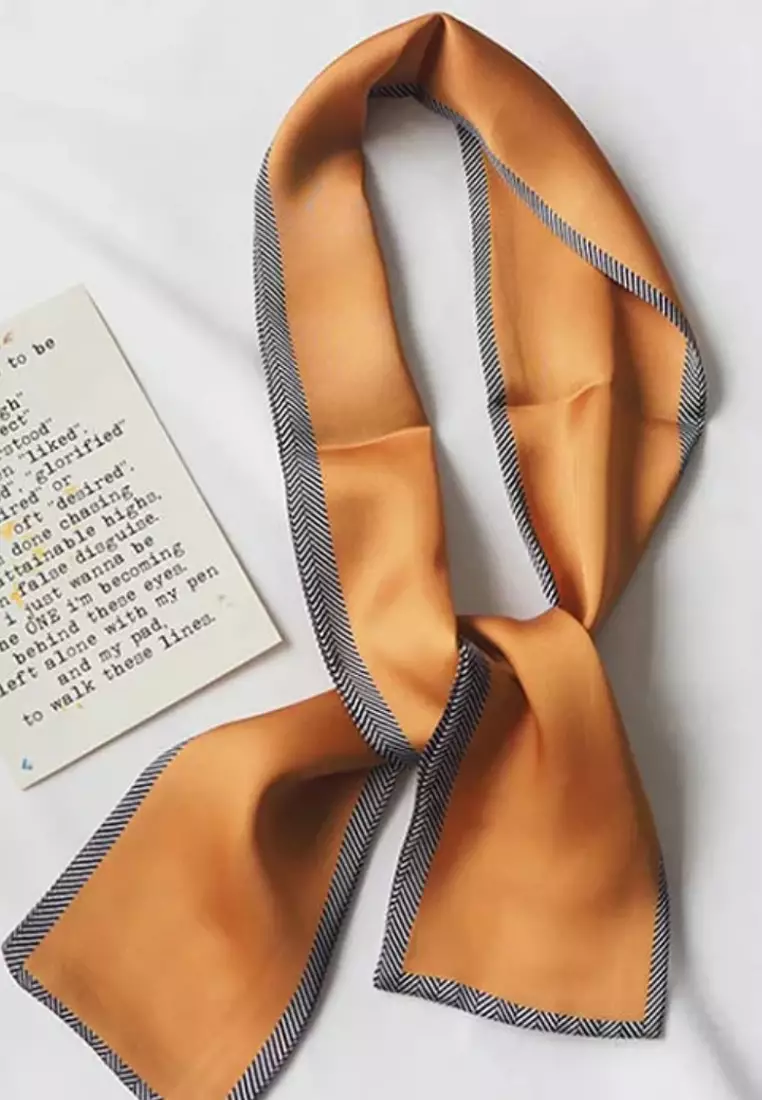 to be
gh"
ect"
rstood"
n "liked".
d". "glorified"
ired" or
oft "desired".
done chasing
ttainable highs.
n false disguise.
i just wanna be
he ONE i'm becoming
behind these eyes.
left alone with my pen
and my pad,
to walk these lines.